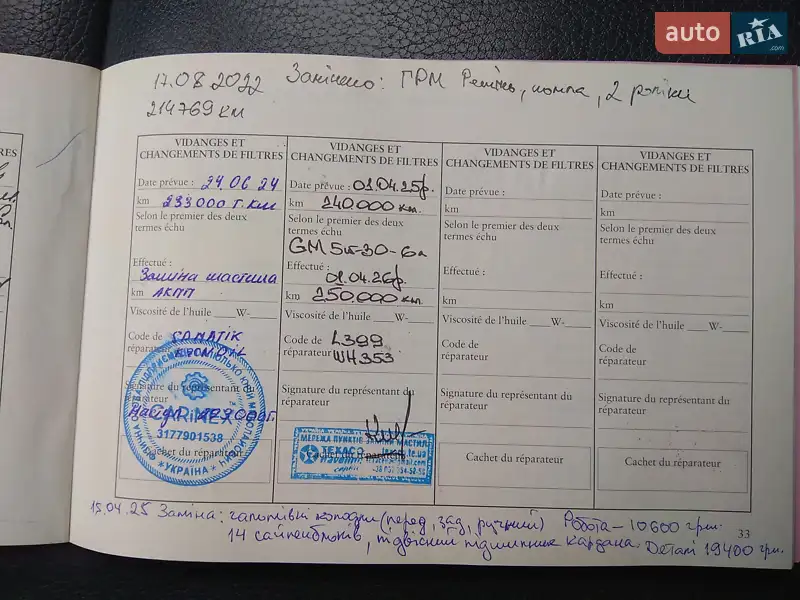 auto RIA .com
17.08.2022 Замінено: ГРМ Ремінь, помпа, 2 роліки
214769 км
VIDANGES ET CHANGEMENTS DE FILTRES
Date prévue : 24 06 24
km 233000 т.км
Selon le premier des deux
termes échu
Effectué :
Заміна мастила
km АКПП
Viscosité de l'huile ___W-___
Code de
réparateur
Signature du représentant du
réparateur
3177901538
Cachet du réparateur
* УКРАЇНА *
VIDANGES ET CHANGEMENTS DE FILTRES
Date prévue : 01.04.25р.
km 240.000 км.
Selon le premier des deux
termes échu
GM 5w-30-6л
Effectué :
01.04.26р.
km 250.000 км
Viscosité de l'huile ___W-___
Code de L399
réparateur WH353
Signature du représentant du
réparateur
МЕРЕЖА ПУНКТІВ ЗАМІНИ МАСТИЛ
TEXACO
VIDANGES ET CHANGEMENTS DE FILTRES
Date prévue :
km
Selon le premier des deux
termes échu
Effectué :
km
Viscosité de l'huile ___W-___
Code de
réparateur
Signature du représentant du
réparateur
Cachet du réparateur
VIDANGES ET CHANGEMENTS DE FILTRES
Date prévue :
km
Selon le premier des deux
termes échu
Effectué :
km
Viscosité de l'huile ___W-___
Code de
réparateur
Signature du représentant du
réparateur
Cachet du réparateur
33
15.04.25 Заміна: гальмівні колодки (перед, зад, ручний) Робота – 10600 грн.
14 сайлентблоків, підвісний підшипник кардана. Деталі 19400 грн.